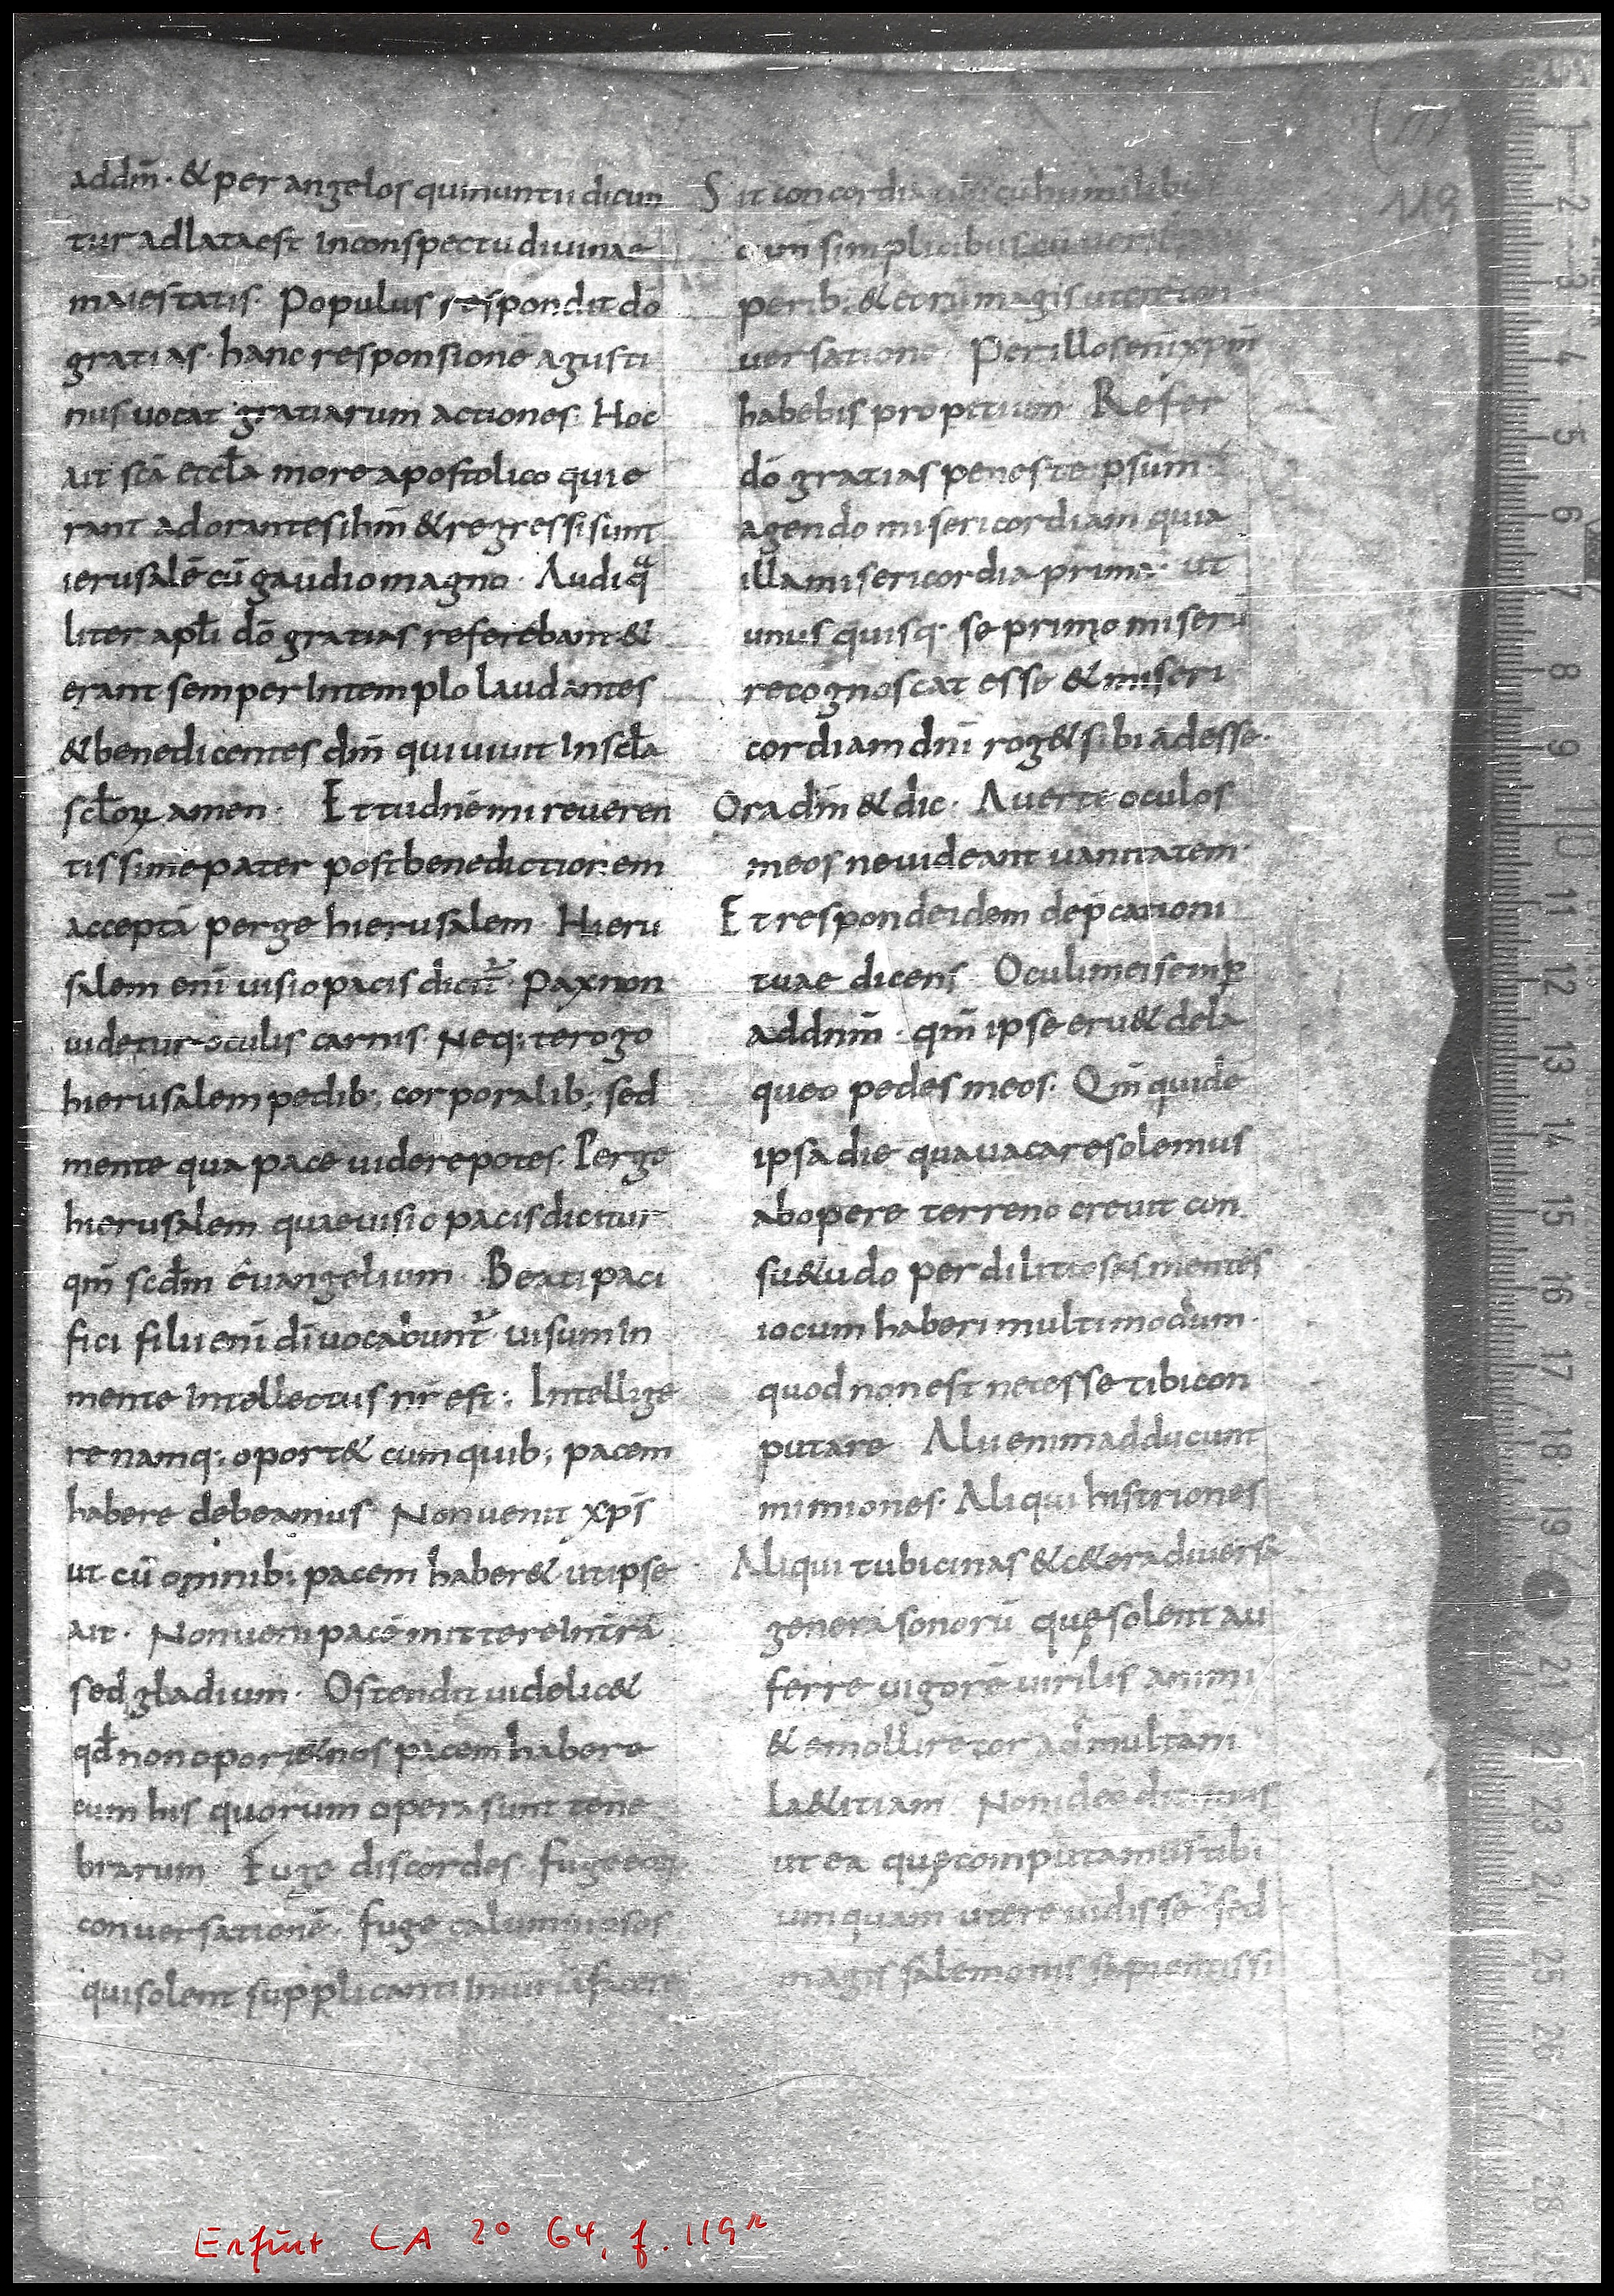 addm̄· & per angelos qui nuntii dicun
tur adlata est in conspectu diuinae
maiestatis· Populus respondit dō
gratias· hanc responsionē agusti
nus uocat gratiarum actiones· Hoc
ait scā eccƚa more apostolico quie
rant adorantes ihm̄ & regressi sunt
ierusalē cū gaudio magno· Audi qͣ
liter apƚi dō gratias referebant &
erant semper in templo laudantes
& benedicentes dm̄ qui uiuit in scƚa
scƚorꝝ amen· Et tu dn̄e mi reueren
tissime pater post benedictionem
acceptā perge hierusalem· Hieru
salem enī uisio pacis dicit̄· Pax non
uidetur oculis carnis· Neq; te rogo
hierusalem pedib; corporalib; sed
mente qua pace uidere potes· Perge
hierusalem quae uisio pacis dicitur
qm̄ scdm̄ euangelium· Beati paci
fici filii enī dī uocabunt̄· uisum in
mente intellectus nr̄ est; Intellige
re namq; oport& cum quib; pacem
habere debeamus· Non uenit xpī
ut cū omnib; pacem haber& ut ipse
ait· Non ueni pacē mittere in trā
sed gladium· Ostendit uidelic&
qd̄ non oport& nos pacem habere
cum his quorum opera sunt tene
brarum· Fuge discordes· fuge eorꝝ
conuersationē· fuge caluminiosos
qui solent supplicanti iniurias facere
Sit concordia cū humilibus
cum simplicibus
perib; & eorū magis utere con
uersatione· Per illos enī xpm̄
habebis propitium· Refer
dō gratias penes te ipsum·
agendo misericordiam quia
illa misericordia prima· ut
unus quisq· se primo miserū
recognoscat esse & miseri
cordiam dnī rog& sibi adesse·
Ora dm̄ & dic· Auerte oculos
meos ne uideant uanitatem·
Et responde idem dep̄cationi
tuae dicens· Oculi mei semp̲
ad dnm̄· qm̄ ipse eru& de la
queo pedes meos· Qm̄ quidē
ipsa die qua uacare solemus
ab opere terreno creuit con
su&udo per dilitiosas mentes
iocum haberi multimodum·
quod non est necesse tibi con
putare Alii enim adducunt
mimiones· Aliqui histriones
Aliqui tubicinas & c&era diuersa
genera sonorū quę solent au
ferre uigorē uirilis animi
& emollire cor ad multam
la&itiam Non ideo dicimus
ut ea quę computamus tibi
umquam utere uidisse· sed
magis salemonis sapientissi
119
Erfurt CA 2° 64, f. 119r